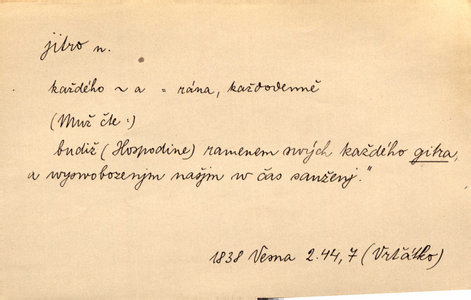 jitro n.
každého ~ a = rána, každodenně
(Muž čte:)
budiž (Hospodine) ramenem swých každého gitra,
a wyswobozenjm našjm w čas sauženj."
1838 Vesna 2.44,7 (Vrťátko)